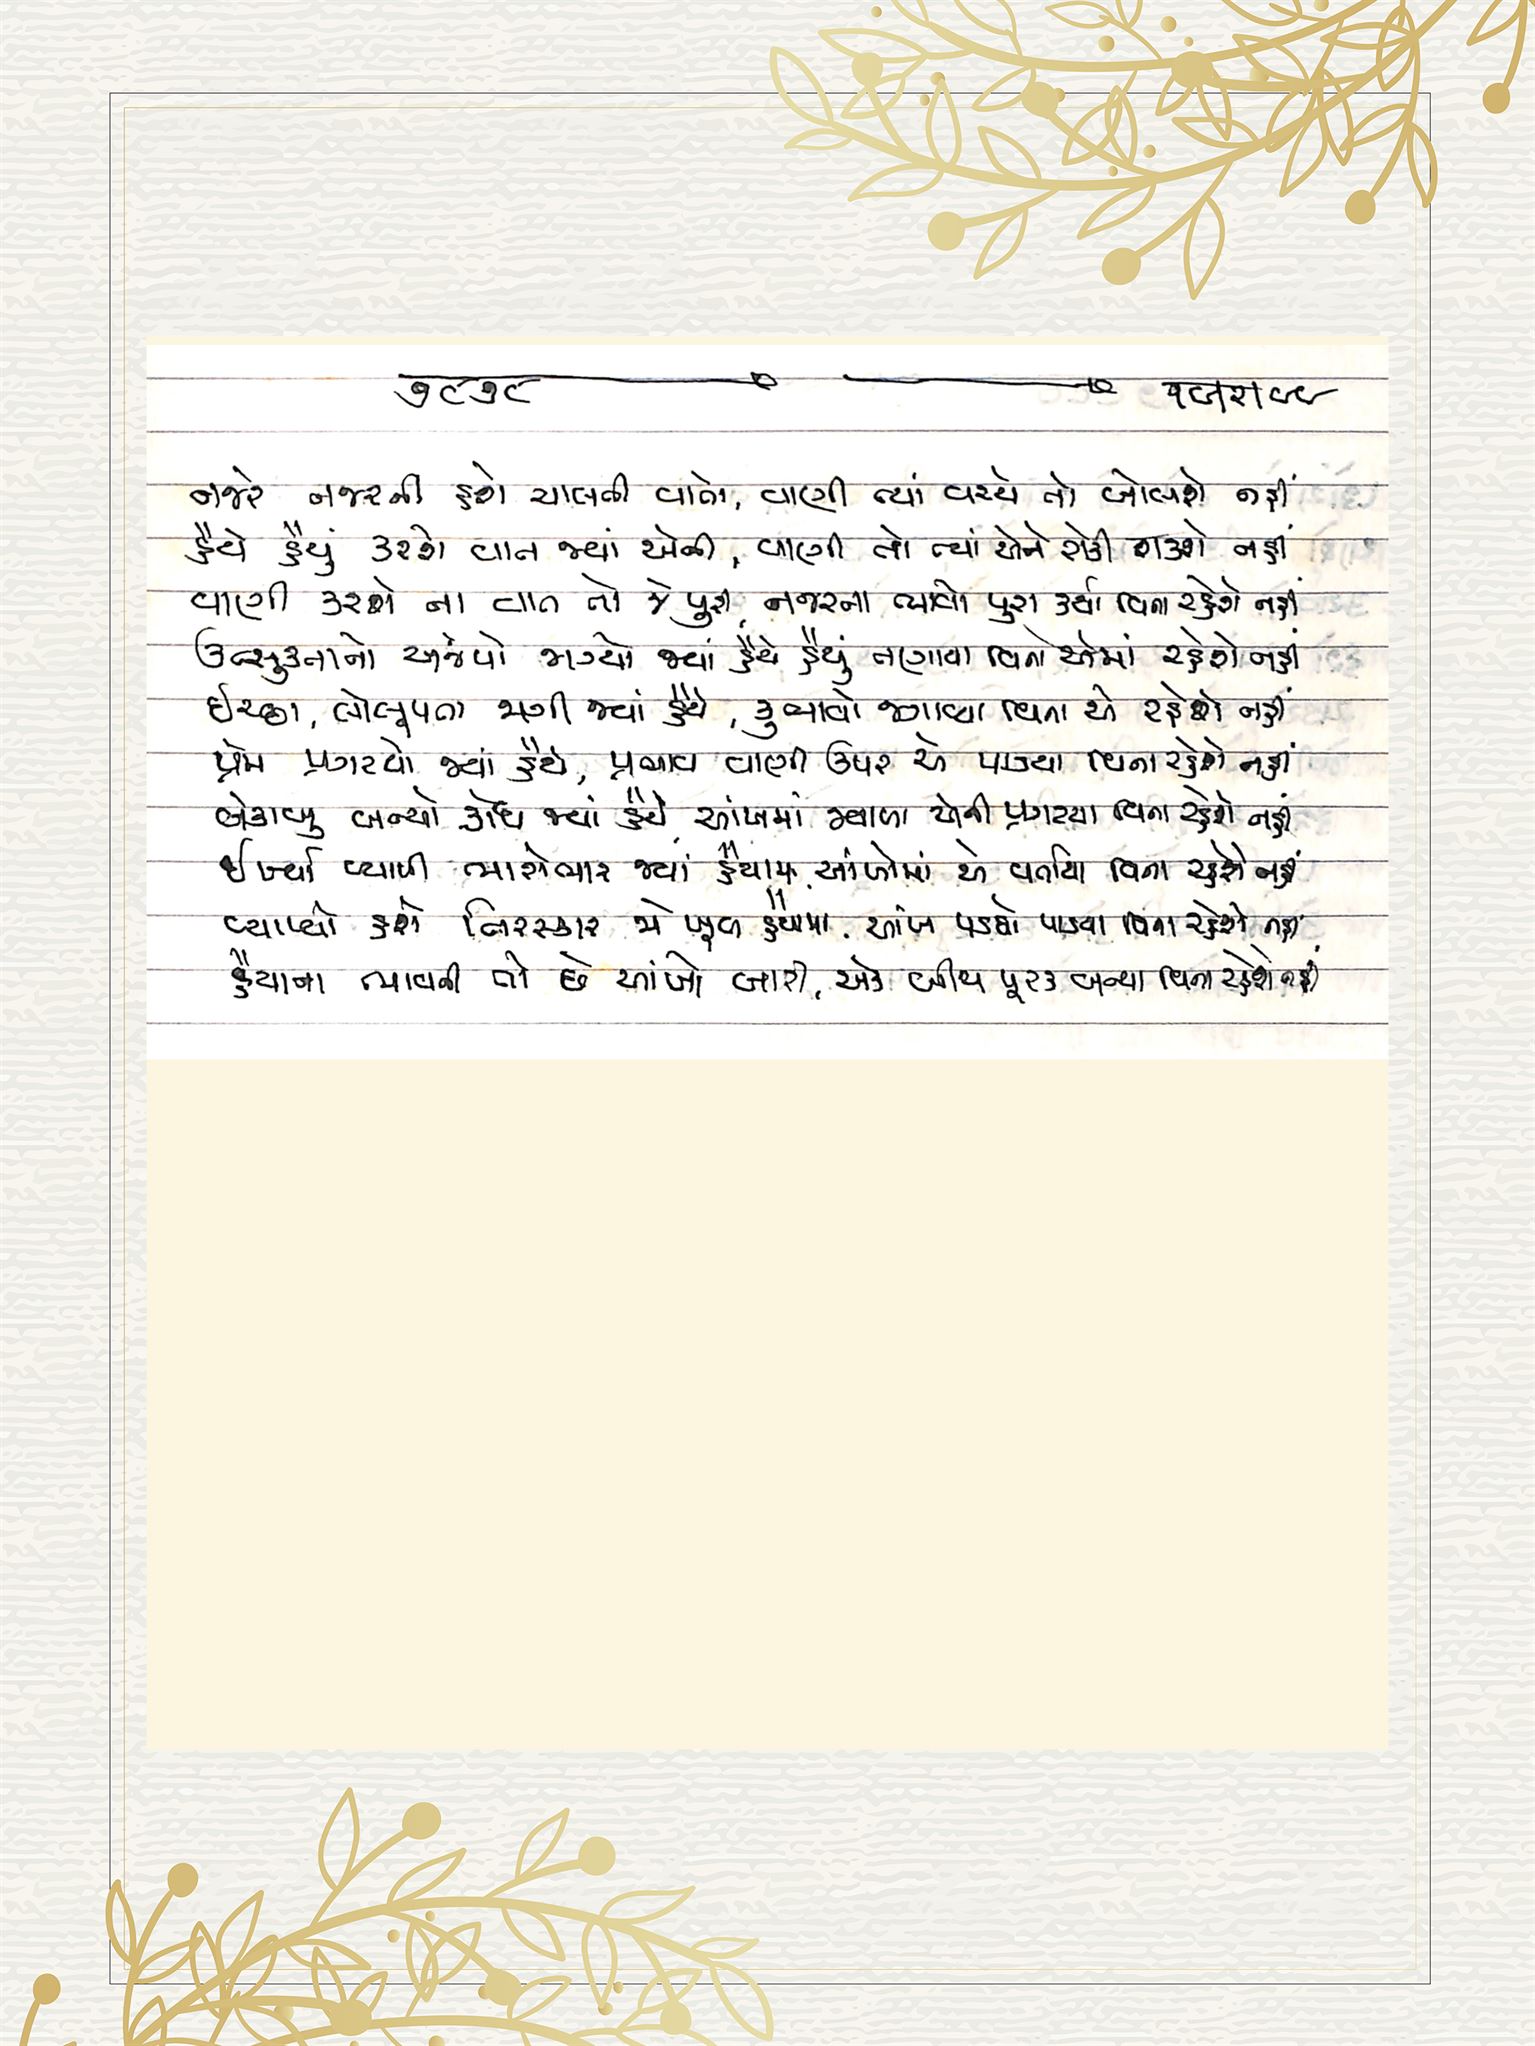 ૭૮૭૮
નજરે નજરની હશે ચાલતી વાતો, વાણી ત્યાં વચ્ચે તો બોલશે નહીં
હૈયે હૈયું કરશે વાત જ્યાં એની, વાણી તો ત્યાં એને રોકી શકશે નહીં
વાણી કરશે ના વાત તો જે પુરી, નજરના ભાવો પુરા કર્યા વિના રહેશે નહીં
ઉત્સુકતાનો અજંપો જાગ્યો જ્યાં હૈયે હૈયું તણાયા વિના એમાં રહેશે નહીં
ઈચ્છા, લોલૂપતા જાગી જ્યાં હૈયે, કુભાવો જગાવ્યા વિના એ રહેશે નહીં
પ્રેમ પ્રગટયો જ્યાં હૈયે, પ્રભાવ વાણી ઉપર એ પાડયા વિના રહેશે નહીં
બેકાબુ બન્યો ક્રોધ જ્યાં હૈયે, આંખમાં જ્વાળા એની પ્રગટયા વિના રહેશે નહીં
ઈર્ષ્યા વ્યાપી ભારોભાર જ્યાં હૈયામાં, આંખોમાં એ વર્તાયા વિના રહેશે નહીં
વ્યાપ્યો હશે તિરસ્કાર જો ખૂબ હૈયામાં, આંખ પડઘો પાડવા વિના રહેશે નહીં
હૈયાના ભાવની તો છે આંખો બારી, એક બીજા પૂરક બન્યા વિના રહેશે નહીં